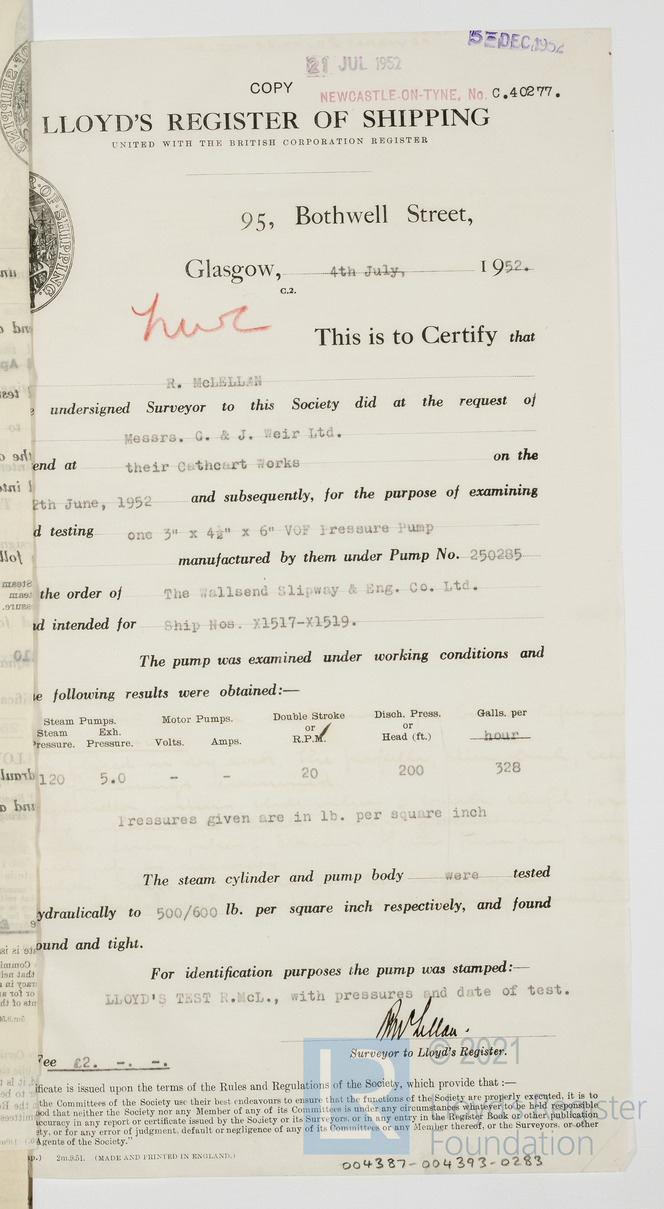 5 - DEC 1952
21 JUL 1952
COPY
NEWCASTLE-ON-TYNE, No. C.40277.
LLOYD'S REGISTER OF SHIPPING
UNITED WITH THE BRITISH CORPORATION REGISTER
95, Bothwell Street,
Glasgow, 4th July, 1952.
C.2.
This is to Certify that
R. McLELLAN
undersigned Surveyor to this Society did at the request of
Messrs. G. & J. Weir Ltd.
end at their Cathcart Works on the
2th June, 1952 and subsequently, for the purpose of examining
d testing one 3" x 4½" x 6" VOF Pressure Pump
manufactured by them under Pump No. 250285
the order of The Wallsend Slipway & Eng. Co. Ltd.
d intended for Ship Nos. X1517-X1519.
The pump was examined under working conditions and
e following results were obtained:—
Steam Pumps. Motor Pumps. Double Stroke or R.P.M. Disch. Press. or Head (ft.) Galls. per hour
Steam Pressure. Exh. Pressure. Volts. Amps.
120 5.0 - - 20 200 328
Pressures given are in lb. per square inch
The steam cylinder and pump body were tested
ydraulically to 500/600 lb. per square inch respectively, and found
ound and tight.
For identification purposes the pump was stamped:—
LLOYD'S TEST R.McL., with pressures and date of test.
RMcLellan.
Surveyor to Lloyd's Register.
Fee £2. -. -.
ificate is issued upon the terms of the Rules and Regulations of the Society, which provide that :—
the Committees of the Society use their best endeavours to ensure that the functions of the Society are properly executed, it is to
ood that neither the Society nor any Member of any of its Committees is under any circumstances whatever to be held responsible
accuracy in any report or certificate issued by the Society or its Surveyors, or in any entry in the Register Book or other publication
ety, or for any error of judgment, default or negligence of any of its Committees or any Member thereof, or the Surveyors, or other
Agents of the Society."
2m.9.51. (MADE AND PRINTED IN ENGLAND.)
004387-004393-0283
© 2021
LR
Lloyd's Register
Foundation